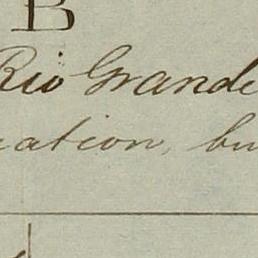 B
Rio Grande
cation, bu